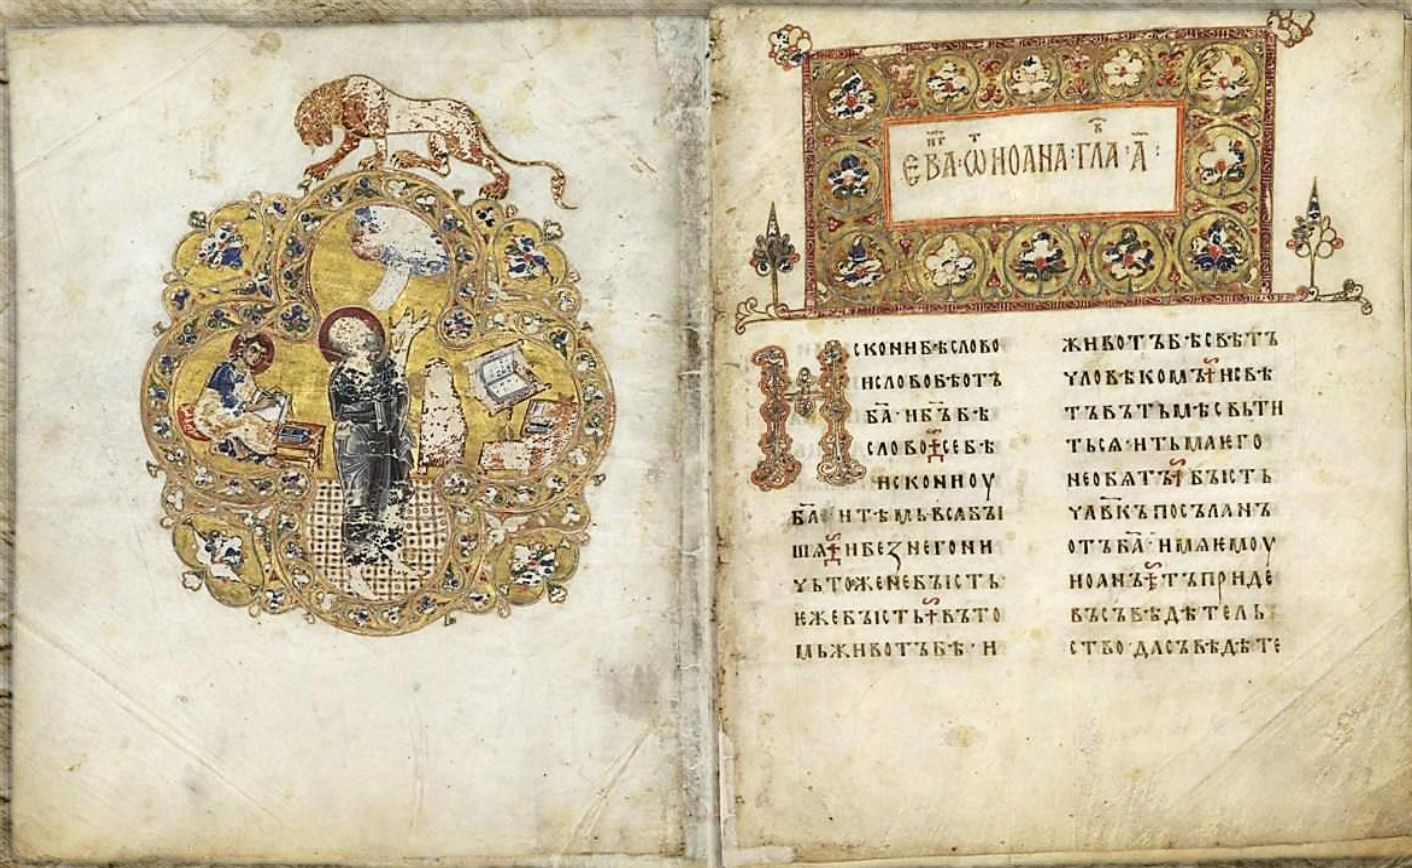 ЕВАН҃Г · Ѿ ИОАНА · ГЛАВ · А҃ :
ИСКОНИБѢСЛОВО
ИСЛОВОБѢОТЪ
БА҃ · ИБ҃ЪБѢ
СЛОВО СЕБѢ
ИСКОНИОУ
БА҃ · ИТѢМЬВСꙖБЫ
ШѦ ИБЕꙀНЕГОНИ
ЧЬТОЖЕНЕБЪІСТЬ
ѤЖЕБЪІСТЬ ВЪТО
МЬЖИВОТЪБѢ · И
ЖИВОТЪБѢСВѢТЪ
ЧЛОВѢКОМЪ ИСВѢ
ТЪВЪТЬМѢСВЬТИ
ТЬСѦ · ИТЬМАѤГО
НЕОБѦТЪ БЪІСТЬ
ЧЛ҃ВКЪПОСЪЛАНЪ
ОТЪБА҃ · ИМѦѤМОУ
ИОАНЪ ТЪПРИДЕ
ВЪСЪВѢДѢТЕЛЬ
СТВО · ДАСЪВѢДѢТЕ